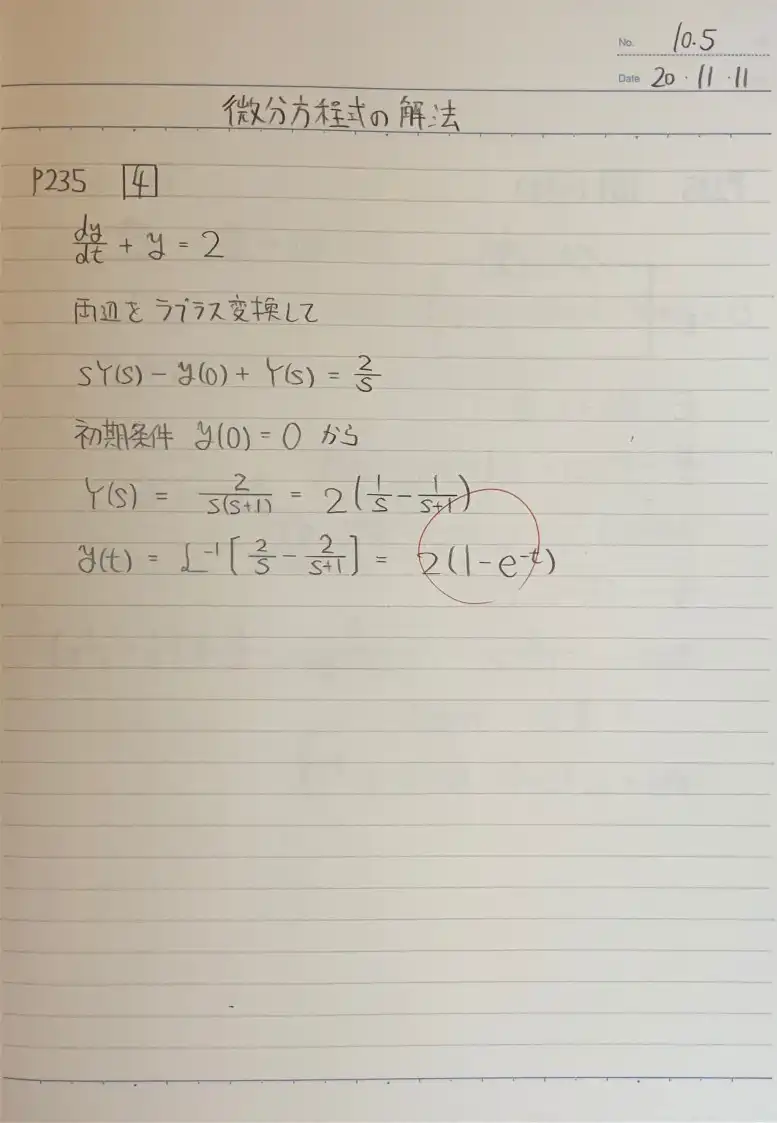 No. 10.5
Date 20・11・11
微分方程式の解法
P235 4
dy/dt + y = 2
両辺をラプラス変換して
sY(s) − y(0) + Y(s) = 2/s
初期条件 y(0) = 0 から
Y(s) = 2/s(s+1) = 2(1/s − 1/s+1)
y(t) = L⁻¹[2/s − 2/s+1] = 2(1−e⁻ᵗ)